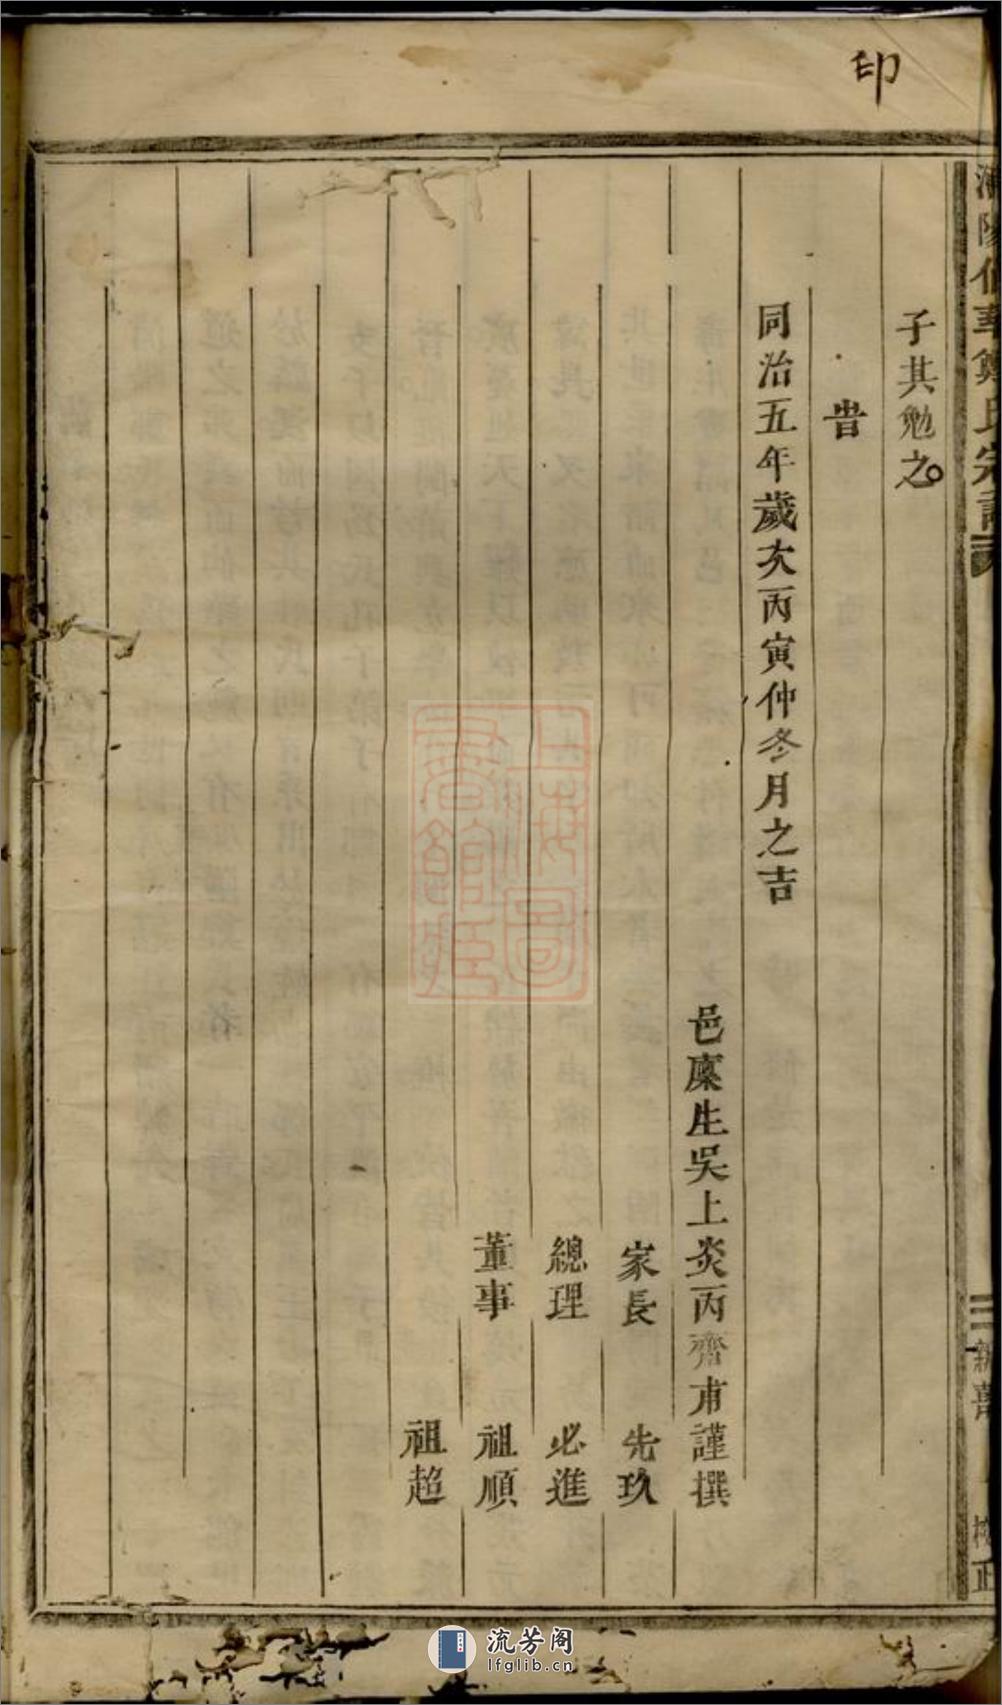 印
子其勉之
旹
同治五年歲次丙寅仲冬月之吉
邑廩生吳上炎丙齋甫謹撰
家長 先玖
總理 必進
董事 祖順
祖超
鄭氏宗譜
校正
上海圖書館藏
流芳阁
lfglib.cn